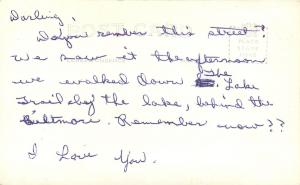 Darling,
Do you rember this street?
We saw it the afternoon
we walked down The Lake
Trail by the lake, behind the
Biltmore. Remember now??
I Love You.